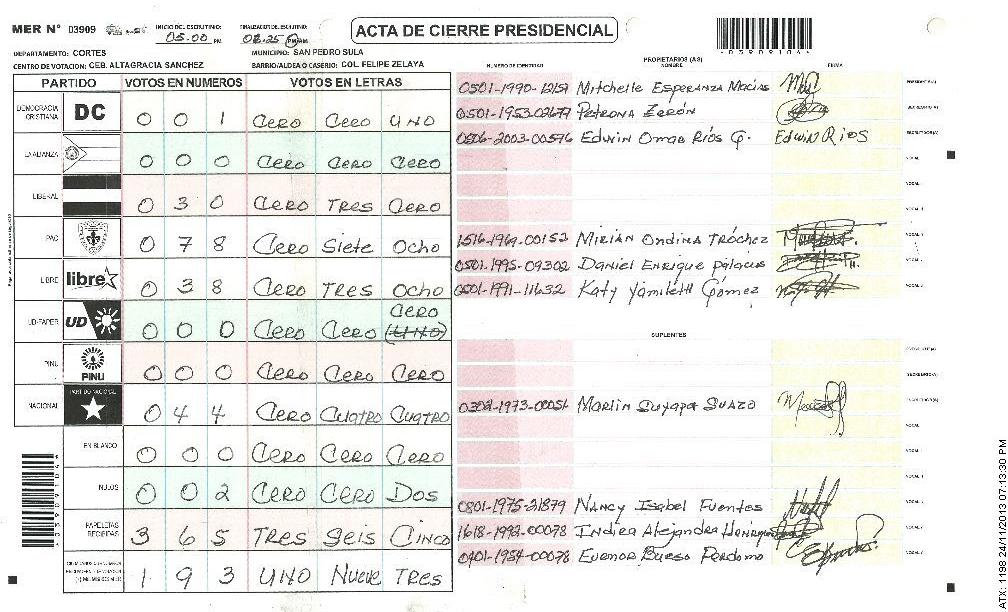 MER N° 03909
INICIO DEL ESCRUTINIO: 05:00 PM
FINALIZACION DEL ESCRUTINIO: 08:25 PM
ACTA DE CIERRE PRESIDENCIAL
DEPARTAMENTO: CORTES
MUNICIPIO: SAN PEDRO SULA
CENTRO DE VOTACION: CEB. ALTAGRACIA SANCHEZ
BARRIO/ALDEA O CASERIO: COL FELIPE ZELAYA
PARTIDO VOTOS EN NUMEROS VOTOS EN LETRAS
DEMOCRACIA CRISTIANA DC 0 0 1 CERO CERO UNO
LA ALIANZA 0 0 0 CERO CERO CERO
LIBERAL 0 3 0 CERO TRES CERO
PAC 0 7 8 CERO Siete OCHO
LIBRE libre 0 3 8 CERO TRES OCHO
UD-FAPER UD 0 0 0 CERO CERO CERO (UNO)
PINU PINU 0 0 0 CERO CERO CERO
NACIONAL PARTIDO NACIONAL 0 4 4 CERO CUATRO CUATRO
EN BLANCO 0 0 0 CERO CERO CERO
NULOS 0 0 2 CERO CERO DOS
PAPELETAS RECIBIDAS 3 6 5 TRES SEIS CINCO
1 9 3 UNO NUEVE TRES
NUMERO DE IDENTIDAD PROPIETARIOS (AS) NOMBRE FIRMA
Mitchelle Esperanza Macias
0501-1953-02677 Petrona Zerón
0506-2003-00576 Edwin Omar Ríos G. Edwin Rios
1516-1969-00152 Mirián Ondina Tróchez
0501-1995-09302 Daniel Enrique Palacius
0501-1991-11632 Katy Yamileth Gómez
SUPLENTES
Marlin Suyapa Suazo
0801-1975-21879 Nancy Isabel Fuentes
1618-1992-00078 Indira Alejandra
0401-1954-00078 Euenor Bueso Perdomo
ATX: 1198 24/11/2013 07:13:30 PM